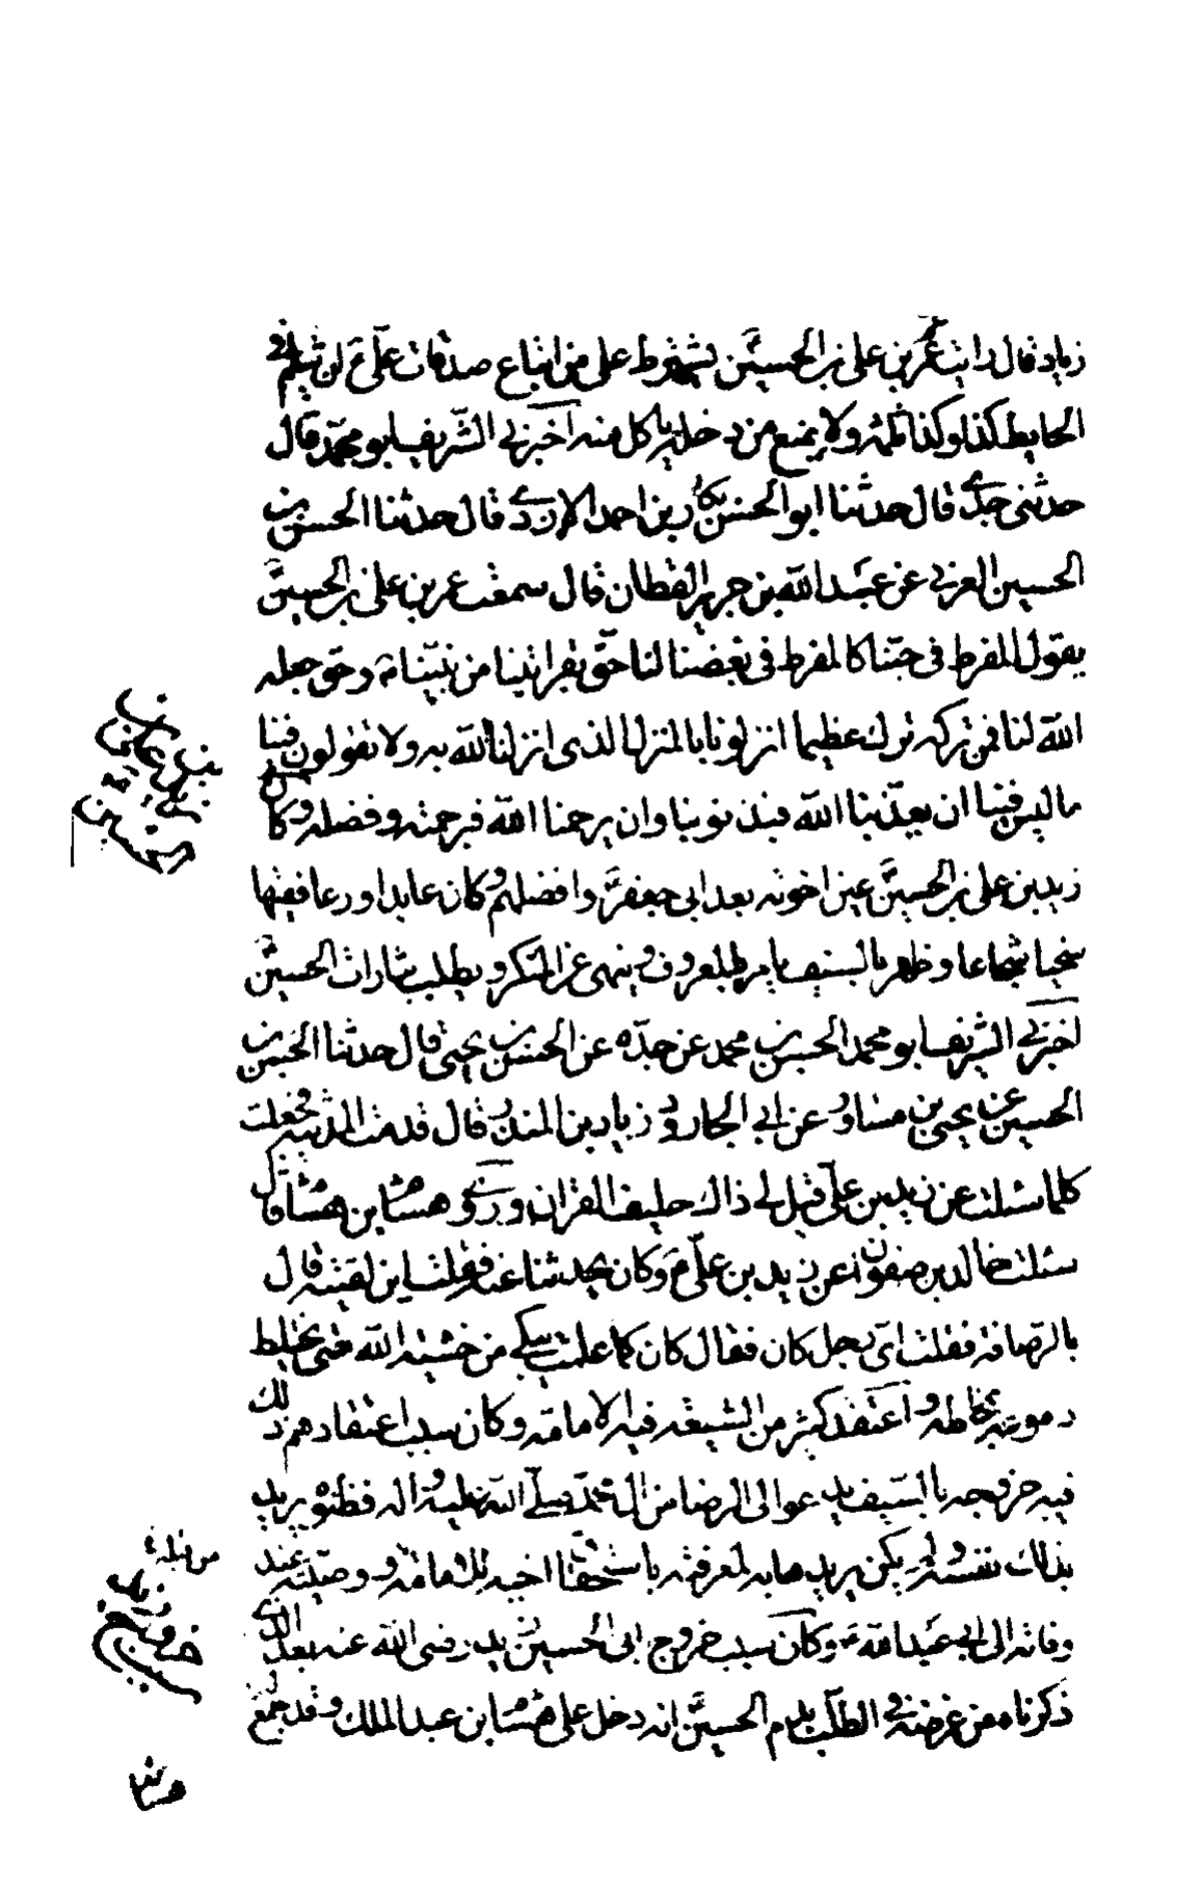 زياد قال رايت عمر بن على بن الحسين ع يشترط على من ابتاع صدقات على ع ان يثلم فى
الحايط كذا وكذا ثلمة ولا يمنع من دخله ياكل منه اخبرنى الشريف ابو محمد قال
حدثنى جدى قال حدثنا ابو الحسن بكار بن احمد الازدى قال حدثنا الحسن بن
الحسين العرنى عن عبيد الله بن جرير القطان قال سمعت عمر بن على بن الحسين ع
يقول المفرط فى حبنا كالمفرط فى بغضنا لنا حق بقرابتنا من نبينا ص وحق جعله
الله لنا فمن تركه ترك عظيما انزلونا بالمنزل الذى انزلنا الله به ولا تقولوا فينا
ما ليس فينا ان يعذبنا الله فبذنوبنا وان يرحمنا الله فبرحمته وفضله وكان
زيد بن على بن الحسين ع عين اخوته بعد ابى جعفر ع وافضلهم وكان عابدا ورعا فقيها
سخيا شجاعا وظهر بالسيف يامر بالمعروف وينهى عن المنكر ويطلب بثارات الحسين ع
اخبرنى الشريف ابو محمد الحسن بن محمد عن جده عن الحسن بن يحيى قال حدثنا الحسن بن
الحسين عن يحيى بن مساور عن ابى الجارود زياد بن المنذر قال قدمت المدينة فجعلت
كلما سئلت عن زيد بن على قيل لى ذاك حليف القران وروى هشام بن هشام قال
سئلت خالد بن صفوان عن زيد بن على ع وكان يحدثنا عنه فقلت اين لقيته قال
بالرصافة فقلت اى رجل كان فقال كان كما علمت يبكى من خشية الله حتى يختلط
دموعه بمخاطه واعتقد كثير من الشيعة فيه الامامة وكان سبب اعتقادهم ذلك
فيه خروجه بالسيف يدعوا الى الرضا من ال محمد صلى الله عليه واله فظنوه يريد
بذلك نفسه ولم يكن يريدها به لمعرفته باستحقاق اخيه للامامة ووصيته عند
وفاته الى ابى عبد الله ع وكان سبب خروج ابى الحسين زيد رضى الله عنه بعد الذى
ذكرناه من غرضه فى الطلب بدم الحسين ع انه دخل على هشام بن عبد الملك وقد جمع له
هشام
زيد بن على بن
الحسين
خروج زيد